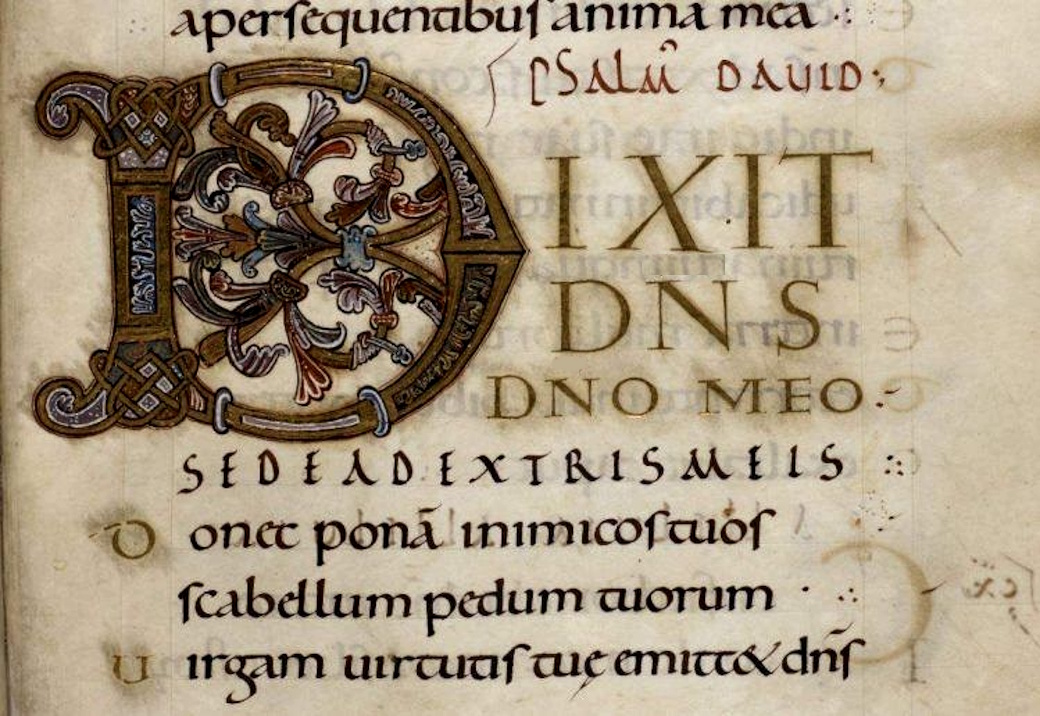 apersequentibus anima mea
PSALM̄ DAVID
DIXIT
DNS
DNO MEO
SEDE AD EXTRIS MEIS
Donec ponā inimicos tuos
scabellum pedum tuorum
Uirgam uirtutis tuę emitt& dn̄s
cx